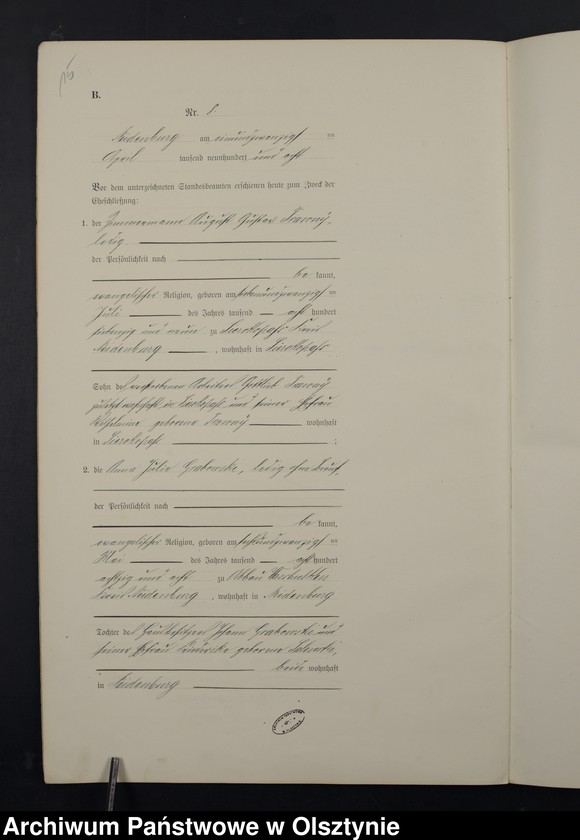 B.
Nr. 8.
Neidenburg am einundzwanzigsten
April tausend neunhundert und acht
Vor dem unterzeichneten Standesbeamten erschienen heute zum Zweck der
Eheschließung:
1. der Zimmermann August Gustav
ledig
der Persönlichkeit nach
be kannt,
evangelischer Religion, geboren am siebenundzwanzigsten
Juli des Jahres tausend acht hundert
siebenzig und neun zu Kreis
Neidenburg, wohnhaft in
Sohn des verstorbenen Arbeiters Gottlieb
zuletzt wohnhaft in und seiner Ehefrau
Wilhelmine geborene wohnhaft
in ;
2. die Anna Julie Grabowski, ledig ohne Beruf,
der Persönlichkeit nach
be kannt,
evangelischer Religion, geboren am
Mai des Jahres tausend acht hundert
achtzig und acht zu Abbau
Kreis Neidenburg, wohnhaft in Neidenburg
Tochter des Johann Grabowski und
seiner Ehefrau geborene
beide wohnhaft
in Neidenburg
Archiwum Państwowe w Olsztynie